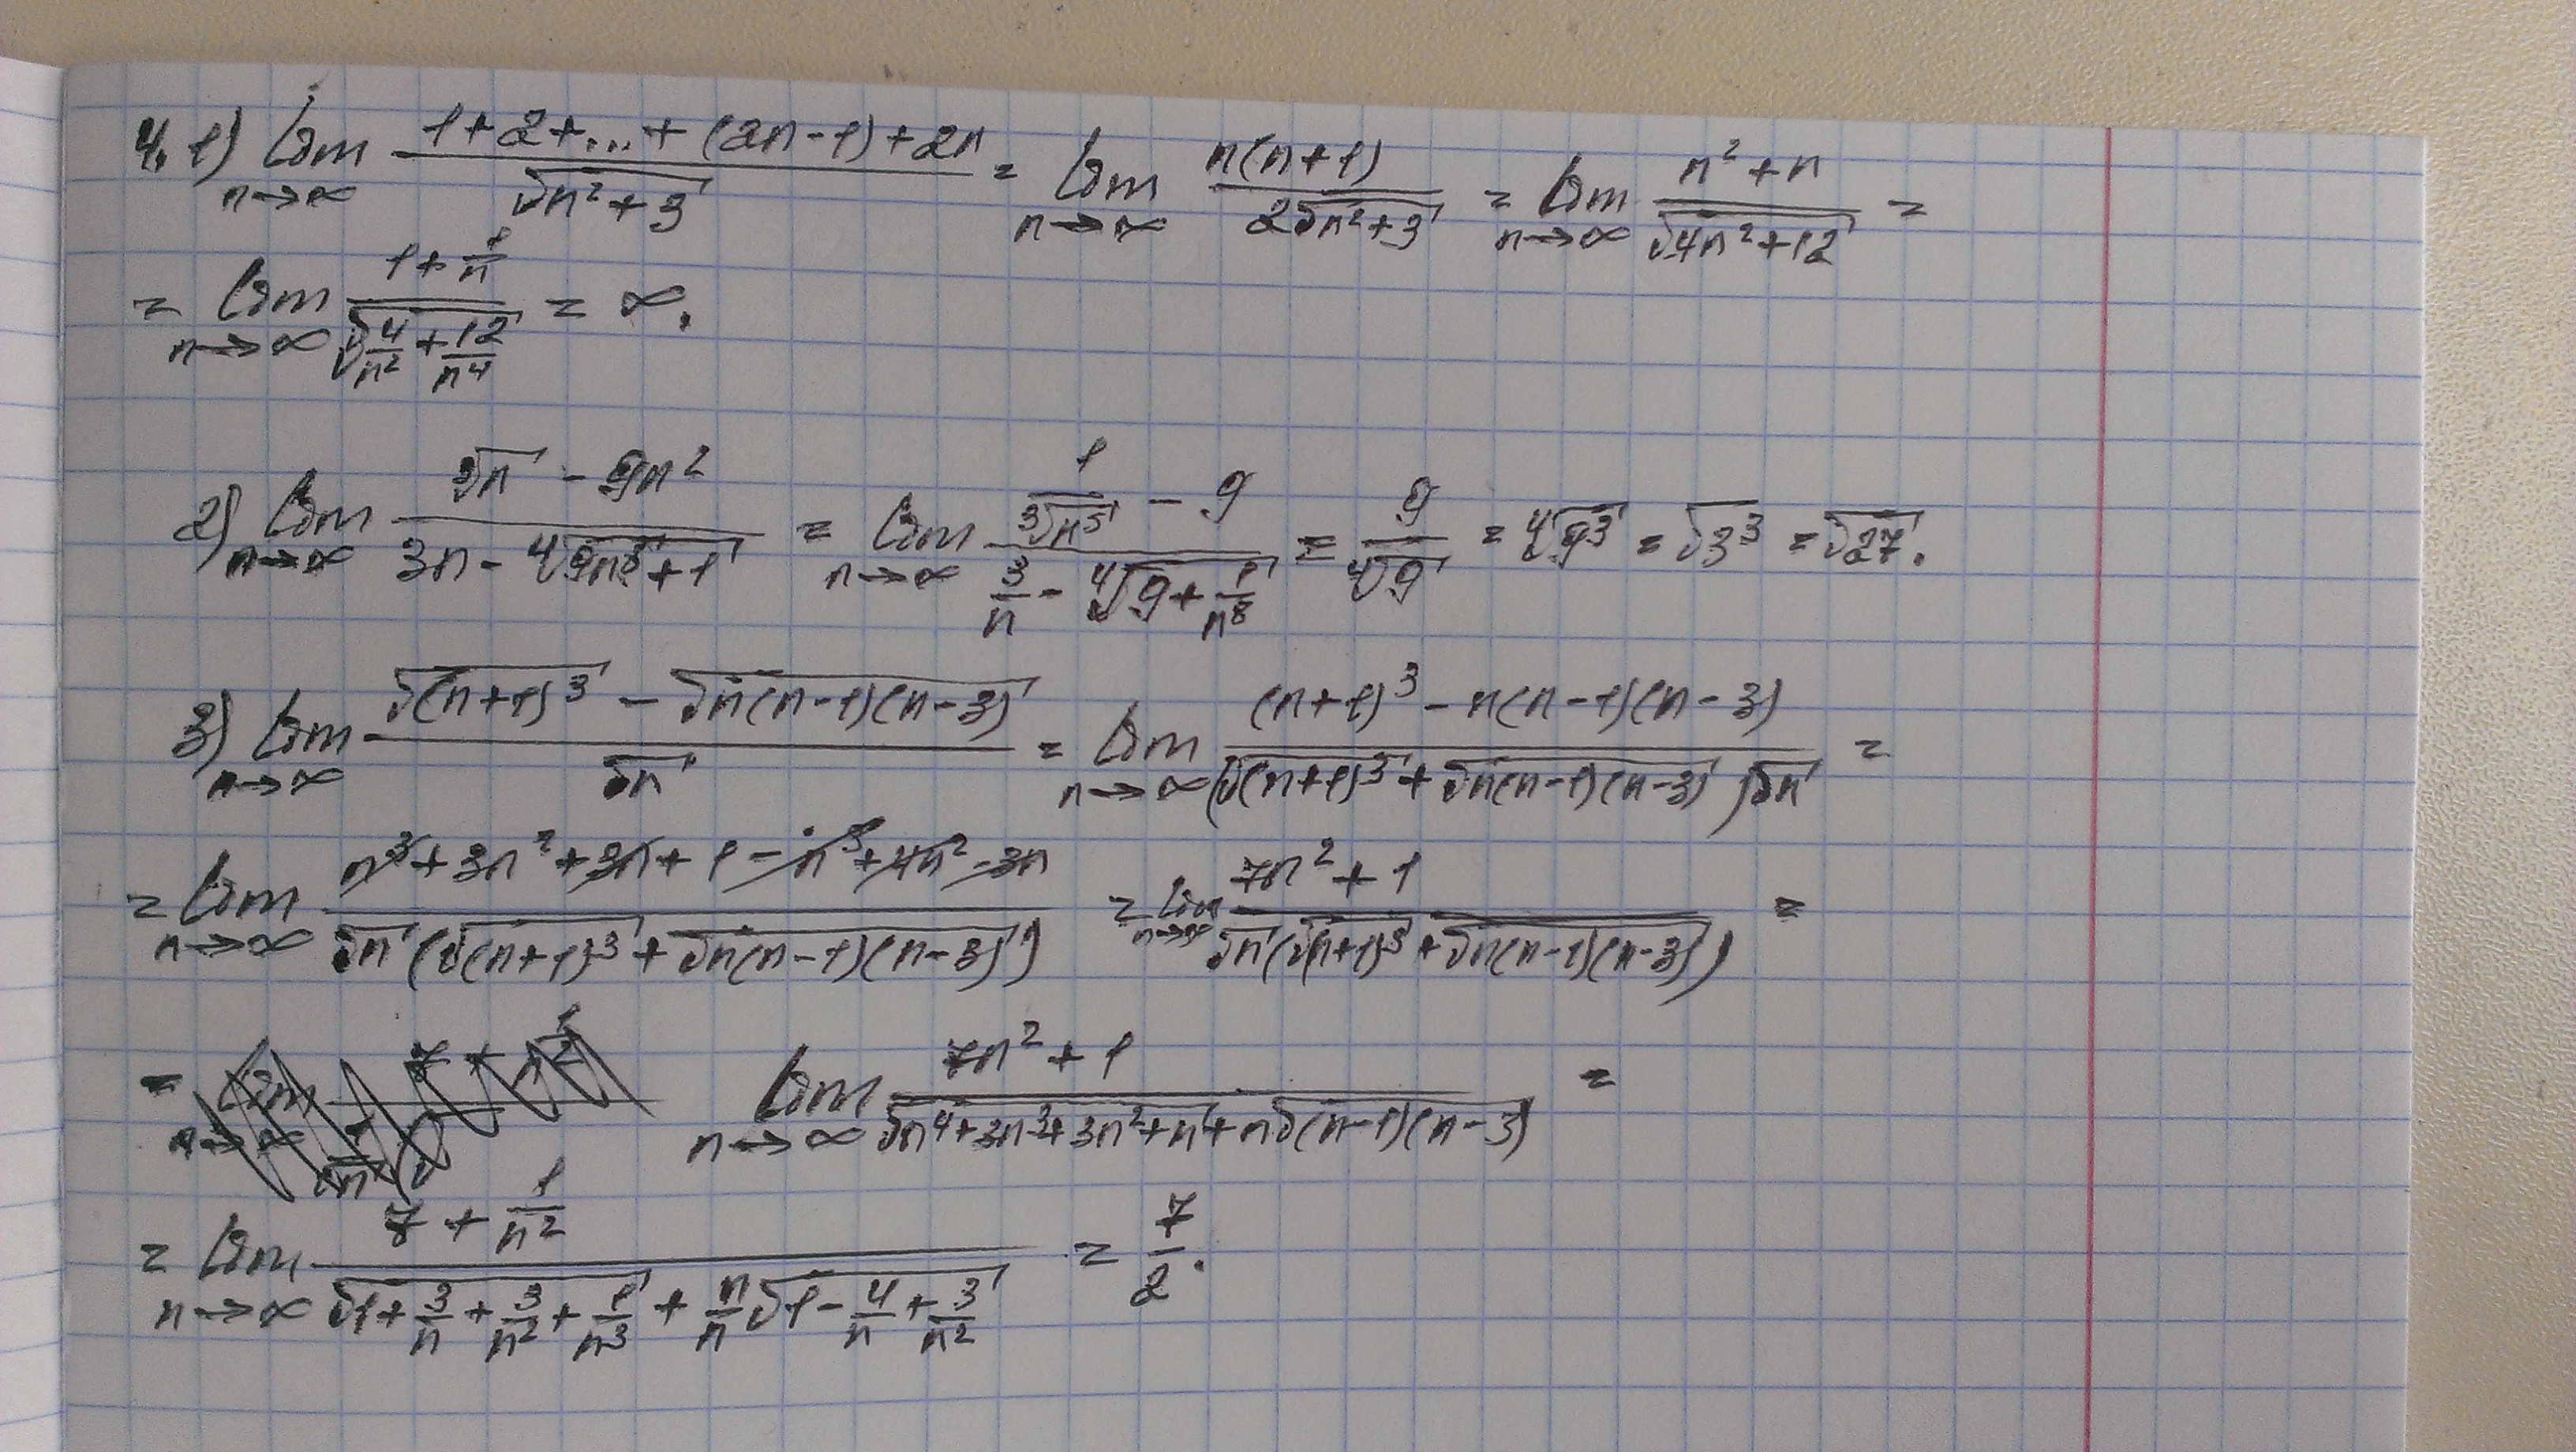 4. 1) lim n→∞ (1+2+...+(2n-1)+2n)/√(n²+3) = lim n→∞ n(n+1)/(2√(n²+3)) = lim n→∞ (n²+n)/√(4n²+12) =
= lim n→∞ (1+1/n)/√(4/n²+12/n⁴) = ∞.
2) lim n→∞ (∛n - 9n²)/(3n - ∜(9n⁸+1)) = lim n→∞ (1/∛(n⁵) - 9)/(3/n - ∜(9+1/n⁸)) = 9/∜9 = ∜(9³) = √(3³) = √27.
3) lim n→∞ (√((n+1)³) - √(n(n-1)(n-3)))/√n = lim n→∞ ((n+1)³ - n(n-1)(n-3))/((√((n+1)³) + √(n(n-1)(n-3)))√n) =
= lim n→∞ (n³+3n²+3n+1-n³+4n²-3n)/(√n(√((n+1)³) + √(n(n-1)(n-3)))) = lim n→∞ (7n²+1)/(√n(√((n+1)³) + √(n(n-1)(n-3)))) =
= lim n→∞ (7n²+1)/(√(n⁴+3n³+3n²+n) + n√((n-1)(n-3))) =
= lim n→∞ (7+1/n²)/(√(1+3/n+3/n²+1/n³) + n/n√(1-4/n+3/n²)) = 7/2.